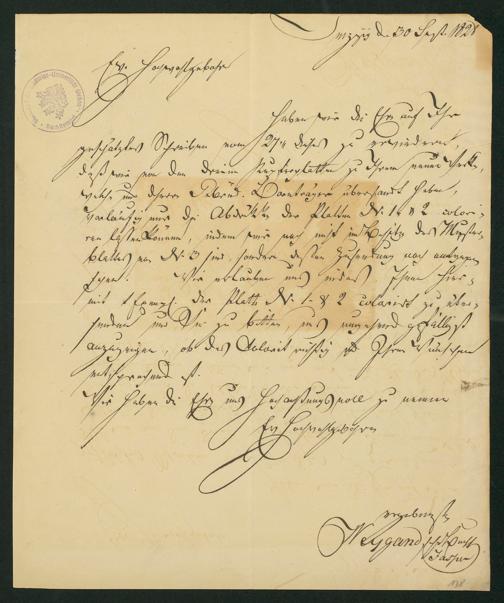 Leipzig d. 30 Sept. 1828
Ew. Hochwohlgebohr
haben wir die Ehre auf Ihr
geschätztes Schreiben vom 27ten dieses zu erwiedern,
daß wir von den dreien Kupferplatten zu Ihrem neuen Werke,
welche uns Gebrüd. Bornträger übersandt haben,
vorläufig nur die Abdrücke der Platten No. 1 & 2 colori-
ren lassen können, indem wir noch nicht im Besitz des Muster-
blattes von No. 3 sind, sondern dessen Zusendung noch entgegen
sehen. Wir erlauben uns indess Ihnen hier-
mit 1 Exempl. der Platte No. 1 & 2 colorirt zu über-
senden und Sie zu bitten, uns umgehend gefälligst
anzuzeigen, ob das Colorit richtig & Ihren Wünschen
entsprechend ist.
Wir haben die Ehre uns Hochachtungsvoll zu nennen
Ew Hochwohlgebohren
ergebenste
Weygand sche Buchh